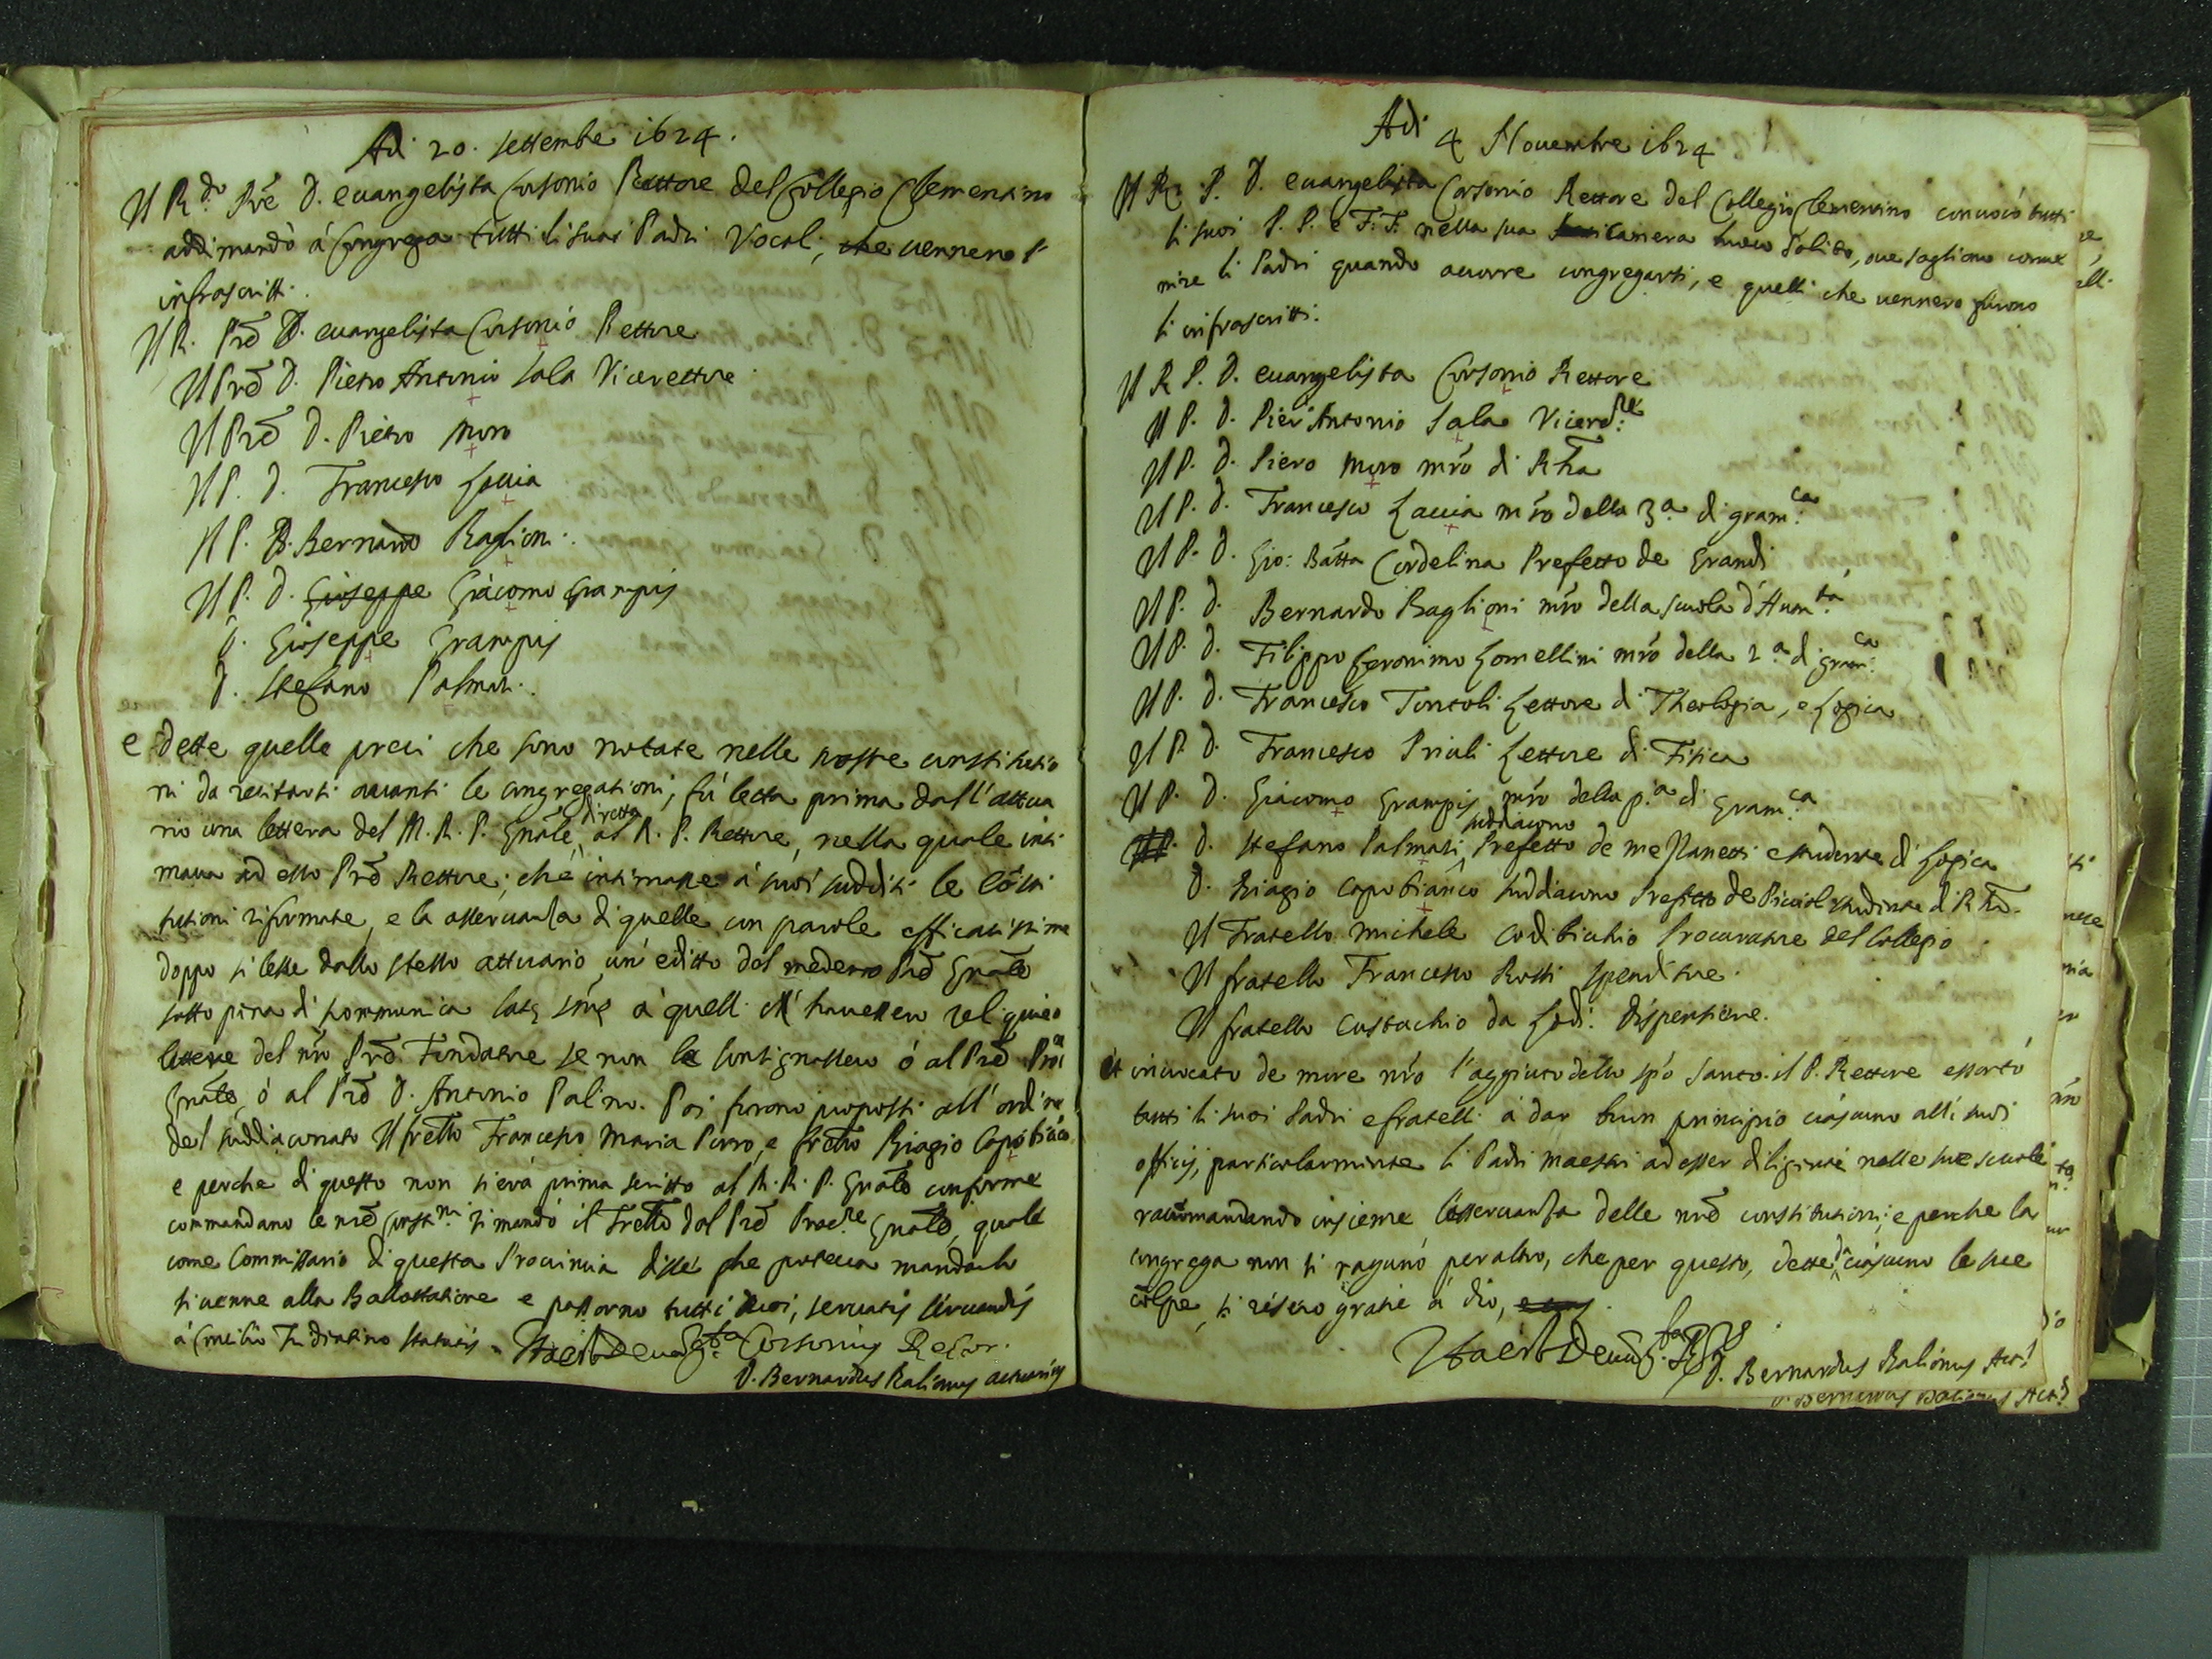 Adi 20. settembre 1624.
Il R.do Prē D. euangelista Corsonio Rettore del Collegio Clementino
addimandò á Congrega tutti li suoi Padri Vocali, che uennero l'
infrascritti.
Il R. Prē D. euangelista Corsonio Rettore
Il Prē D. Pietro Antonio Sala Vicerettore
Il Prē D. Pietro Moro
Il P. D. Francesco Laccia
Il P. D. Bernardo Baglioni.
Il P. D. Giuseppe Giacomo Grampis
D. Gioseppe Grampis
D. Stefano Palmari.
e dette quelle preci che sono notate nelle nostre constitutio
ni da recitarsi auanti le congregationi, fú letta prima dall'attua
rio una lettera del M. R. P. Gnāle, diretta al R. P. Rettore, nella quale inti
maua ad esso Prē Rettore, che intimasse á suoi sudditi le cōsti
tutioni riformate, e la osseruanza di quelle con parole efficacissime
doppo si lesse dallo stesso attuario un'editto dal medemo Prē Gnāle
sotto pena di scommunica latę sñę á quelli ch'hauessero reliquie o
lettere del nr̄o Prē Fondatore se non le consignassero ó al Prē Pror
Gnāle, ó al Prē D. Antonio Palino. Poi furono proposti all'ordine
del suddiaconato Il frello Francesco Maria Porro, e frello Biagio Capobiāco
e perche di questo non si era prima scritto al M. R. P. Gnāle conforme
commandano le nrē Consti.ni si mandó il Frello dal Prē Proc.re Gnāle, quale
come Commissario di questa Prouincia disse che poteua mandarlo
si uenne alla Ballottatione e passorno tutti duoi, seruatis seruandis
á Concilio Tridentino statutis. Ita est D. Euang.ta Corsonius Rector.
D. Bernardus Balionus actuarius
Adi 4 Nouembre 1624
Il R. P. D. euangelista Corsonio Rettore del Collegio Clementino conuocó tutti
li suoi P. P. e F. F. nella sua camera luoco solito, oue sogliono conue
nire li Padri quando occorre congregarsi, e quelli che uennero furono
li infrascritti.
Il R. P. D. euangelista Corsonio Rettore
Il P. D. Pier'Antonio Sala Vicere.re
Il P. D. Piero Moro mr̄o di Rh̄a
Il P. D. Francesco Laccia mr̄o della 3.a di gram.ca
Il P. D. Gio: Batta Cordelina Prefetto de Grandi
Il P. D. Bernardo Baglioni mr̄o della scuola d'Hum.tá
Il P. D. Filippo Geronimo Lomellini mr̄o della 2.a di gram.ca
Il P. D. Francesco Tontoli Lettore di Theologia, e Logica
Il P. D. Francesco Priuli Lettore di Fisica
Il P. D. Giacomo Grampis mr̄o della p.a di Gram.ca
D. Stefano Palmari, suddiacono Prefetto de mezzanetti e studente di Logica
D. Biagio Capobianco suddiacono Prefetto de Piccioli studente di Rh̄a.
Il Fratello Michele Codibichio Procuratore del Collegio
Il fratello Francesco Rossi spenditore.
Il fratello Eustachio da Lodi. dispensiere.
Et inuocato de more nr̄o l'aggiuto dello spō Santo. il P. Rettore essortó
tutti li suoi Padri e fratelli á dar buon principio ciascuno alli suoi
officij, particolarmente li Padri Maestri ad esser diligenti nelle sue scuole
raccomandando insieme l'osseruanza delle nrē constitutioni, e perche la
congrega non si ragunó per altro, che per questo, dette da ciascuno le sue
colpe, si resero gratie á dio,
Ita est D. Euang.ta
D. Bernardus Balionus Act.s
D. Bernardus Balionus Act.s